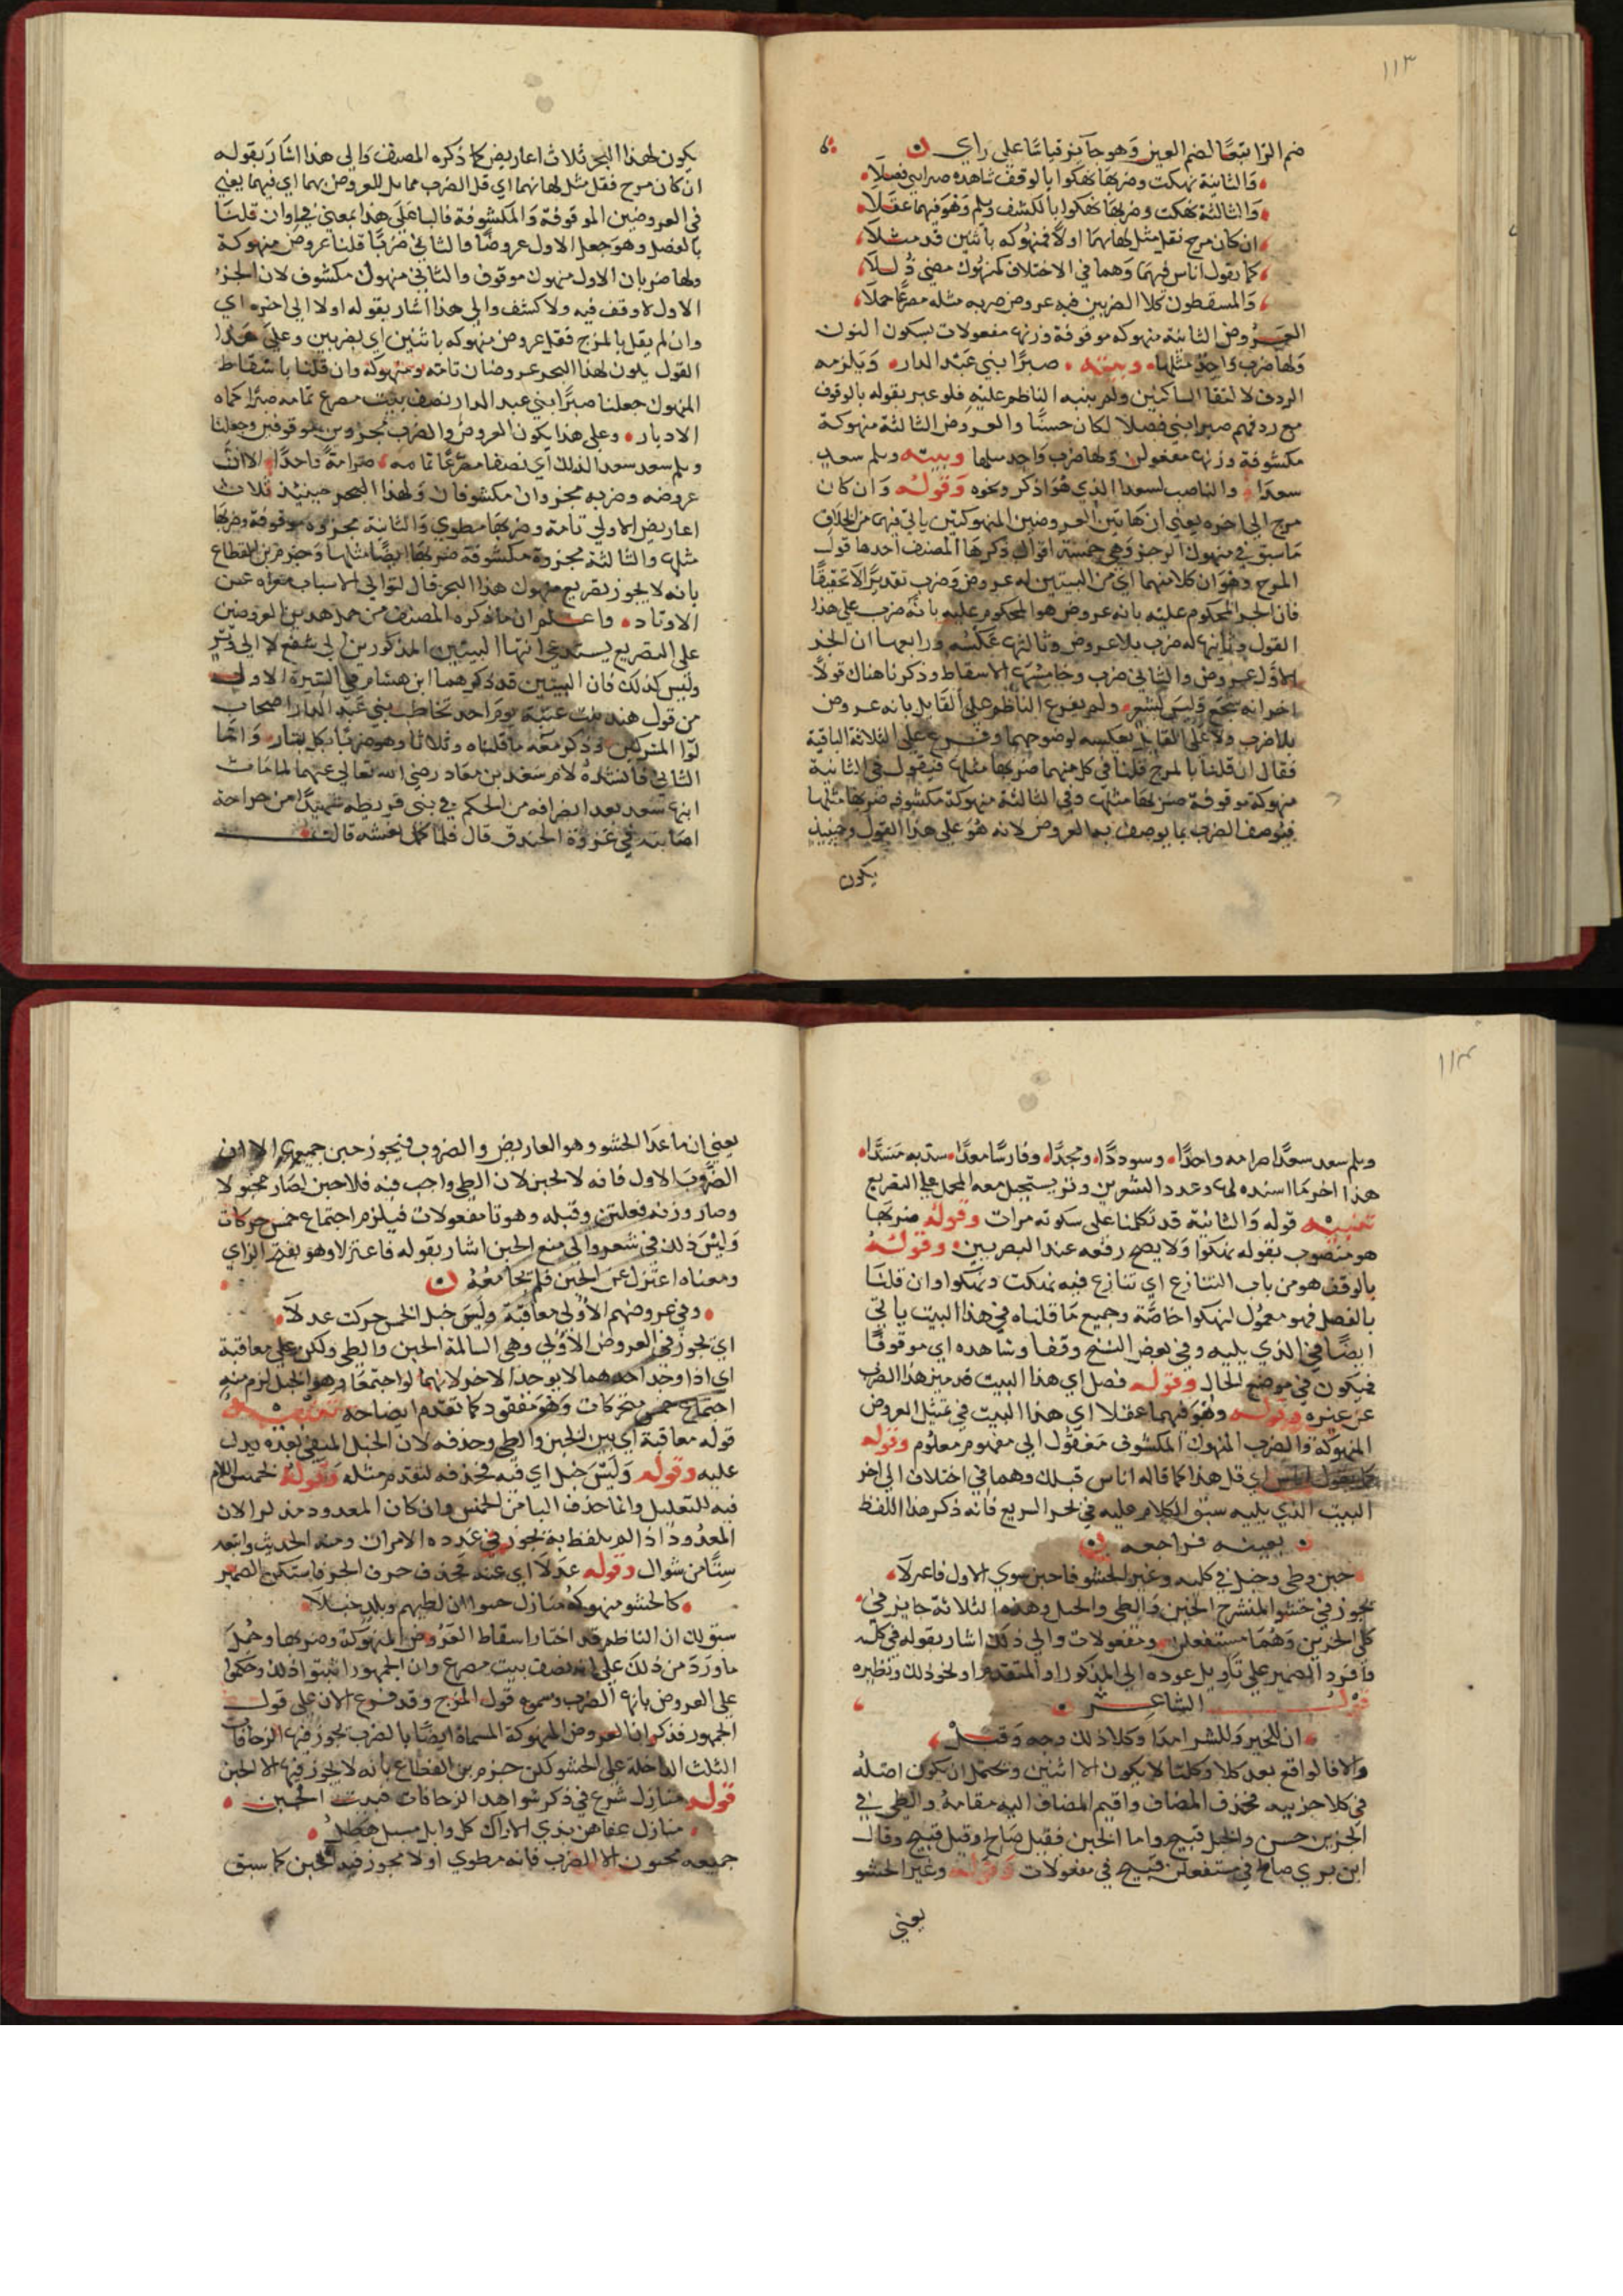 ١١٣
ضم الزا تبعا لضم العين وهو جايز قياسا على راي
والثانية نهكت وضربها نهكوا بالوقف شاهده صبرا بني فصلا
والثالثة نهكت وضربها نهكوا بالكشف ويلم وهو فيهما عقلا
ان كان مزج فقل مثل لها بهما اولا فمنهوكه باثنين قد مثلا
كما يقول اناس فيهما وهما في الاختلاف كمنهوك مضى ذللا
والمسقطون كلا الضربين فيه عروض ضربه مثله مصرعا حملا
العروض الثانية منهوكه موقوفة وزنها مفعولات بسكون النون
ولها ضرب واحد مثلها وبيته صبرا بني عبد الدار ويلزمه
الردف لالتقا الساكنين ولم ينبه الناظم عليه فلو عبر بقوله بالوقوف
مع ردفهم صبرا بني فصلا لكان حسنا والعروض الثالثة منهوكة
مكشوفة وزنها مفعولن ولها ضرب واحد مثلها وبيته ويلم سعد
سعدا والناصب لسعدا الذي هو اذكر ونحوه وقوله وان كان
مزج الى اخره يعني ان هاتين العروضين المنهوكتين ياتي فيهما من الخلاف
ما سبق في منهوك الرجز وهي خمسة اقوال ذكرها المصنف احدها قول
المزج وهو ان كلا منهما اي من البيتين له عروض وضرب تقديرا لا تحقيقا
فان الجزء المحكوم عليه بانه عروض هو المحكوم عليه بانه ضرب على هذا
القول وثانيها له ضرب بلا عروض وثالثها عكسه ورابعها ان الجزء
الاول عروض والثاني ضرب وخامسها الاسقاط وذكرنا هناك قولا
اخر انه سجع وليس بشعر ولم يفرع الناظم على القايل بانه عروض
بلا ضرب ولا على القايل بعكسه لوضوحهما وفرع على الثلاثة الباقية
فقال ان قلنا بالمزج قلنا في كل منهما ضربها مثلها فيقول في الثانية
منهوكة موقوفة ضربها مثلها وفي الثالثة منهوكة مكشوفة ضربها مثلها
فيوصف الضرب بما يوصف به العروض لانه هو على هذا القول وحينيذ
يكون
يكون لهذا البحر ثلاث اعاريض كما ذكره المصنف والى هذا اشار بقوله
ان كان مزج فقل مثل لها بهما اي قل الضرب مماثل للعروض بهما اي فيهما يعني
في العروضين الموقوفة والمكشوفة فالبا على هذا بمعنى في وان قلنا
بالفصل وهو جعل الاول عروضا والثاني ضربا قلنا عروض منهوكة
ولها ضربان الاول منهوك موقوف والثاني منهوك مكشوف لان الجزء
الاول لا وقف فيه ولا كشف والى هذا اشار بقوله اولا الى اخره اي
وان لم يقل بالمزج فقل عروض منهوكه باثنين اي بضربين وعلى هذا
القول يكون لهذا البحر عروضان تامة ومنهوكة وان قلنا باسقاط
المنهوك جعلنا صبرا بني عبد الدار نصف بيت مصرع تمامه صبرا حماه
الادبار وعلى هذا يكون العروض والضرب مجزوين موقوفين وجعلنا
ويلم سعد سعدا لذلك اي نصفا مصرعا تمامه صرامة واحدا الا ان
عروضه وضربه مجزوان مكشوفان ولهذا البحر حينيذ ثلاث
اعاريض الاولى تامة وضربها مطوي والثانية مجزوة موقوفة وضربها
مثلها والثالثة مجزوة مكشوفة ضربها ايضا مثلها وجزم بن القطاع
بانه لا يجوز تصريع منهوك هذا البحر قال لتوالي الاسباب معراه عن
الاوتاد واعلم ان ما ذكره المصنف من حمل هذين العروضين
على التصريع يستدعي انتها البيتين المذكورين الى شفع لا الى وتر
وليس كذلك فان البيتين قد ذكرهما ابن هشام في السيرة الاول
من قول هند بنت عتبة يوم احد تخاطب بني عبد الدار اصحاب
لوا المشركين وذكر معه ما قلناه وثلاثا وهو ضربا بكل بتار واما
الثاني فانشده لام سعد بن معاد رضي الله تعالى عنهما لما مات
ابنها سعد بعد انصرافه من الحكم في بني قريظة شهيدا من جراحة
اصابته في غزوة الخندق قال فلما حمل نعشه قالت
١١٤
ويلم سعد سعدا صرامه واحدا وسوددا ومجدا وفارسا معدا سد به مسدا
هذا اخر ما اسنده لها وعدد الشعرين وتر يستحيل معه الحمل على التصريع
تنبيه قوله والثانية قد تكلمنا على سكوته مرات وقوله ضربها
هو منصوب بقوله نهكوا ولا يصح رفعه عند البصريين وقوله
بالوقف هو من باب التنازع اي تنازع فيه نهكت ونهكوا وان قلنا
بالفصل فهو معمول لنهكوا خاصة وجميع ما قلناه في هذا البيت ياتي
ايضا في الذي يليه وفي بعض النسخ وقفا وشاهده اي موقوفا
فيكون في موضع الحال وقوله فصل اي هذا البيت قد ميز هذا الضرب
عن غيره وقوله وهو فيهما عقلا اي هذا البيت في تمثيل العروض
المنهوكة والضرب المنهوك المكشوف معقول اي مفهوم معلوم وقوله
كما يقول اناس اي قل هذا كما قاله اناس قبلك وهما في اختلاف الى اخر
البيت الذي يليه سبق الكلام عليه في بحر السريع فانه ذكر هذا اللفظ
بعينه فراجعه
خبن وطي وخبل في كليه وغير الحشو فاخبن سوى الاول فاعزلا
يجوز في حشو المنسرح الخبن والطي والخبل وهذه الثلاثة جايز في
كلي الجزين وهما مستفعلن ومفعولات والى ذلك اشار بقوله في كله
وافرد الضمير على تاويل عوده الى المذكور او المتقدم او نحو ذلك ونظيره
قول الشاعر
ان للخير وللشر مدا وكلا ذلك وجه وقبل
والا فالواقع بعد كلا وكلتا لا يكون الا اثنين ويحتمل ان يكون اصله
في كلا جزييه فحذف المضاف واقيم المضاف اليه مقامه والطي في
الجزين حسن والخبل قبيح واما الخبن فقيل صالح وقيل قبيح وقال
ابن بري صالح في مستفعلن قبيح في مفعولات وقوله وغير الحشو
يعني
يعني ان ما عدا الحشو وهو العاريض والضروب فيجوز خبن جميعها الا ان
الضرب الاول فانه لا يخبن لان الطي واجب فيه فلا خبن لصار مخبولا
وصار وزنه فعلتن وقبله وهو تا مفعولات فيلزم اجتماع خمس حركات
وليس ذلك في شعر والى منع الخبن اشار بقوله فاعتزلا وهو بفتح الزاي
ومعناه اعتزل عن الخبن فلم يجامعه
وفي عروضهم الاولى معاقبة وليس خبل لخمس حركت عدلا
اي يجوز في العروض الاولى وهي السالمة الخبن والطي ولكن على معاقبة
اي اذا وجد احدهما لا يوجد الاخر لانهما لو اجتمعا وهو الخبل لزم منه
اجتماع خمس متحركات وهو مفقود كما تقدم ايضاحه تنبيه
قوله معاقبة اي بين الخبن والطي وحذفه لان الخبل المنفي بعده يدل
عليه وقوله وليس خبل اي فيه فحذفه لتقدم مثله وقوله لخمس اللام
فيه للتعليل وانما حذف التا من الخمس وان كان المعدود مذكرا لان
المعدود اذا لم يلفظ به يجوز في عدده الامران ومنه الحديث واتبعه
ستا من شوال وقوله عدلا اي عنه فحذف حرف الجر فاستكن الضمير
كالحشو منهوكه منازل حسوا ان لطيهم وبلد خبلا
سبق لك ان الناظم قد اختار اسقاط العروض المنهوكة وضربها وحمل
ما ورد من ذلك على انه نصف بيت مصرع وان الجمهور اثبتوا ذلك وحكموا
على العروض بانها الضرب وسموه قول المزج وقد فرع الان على قول
الجمهور فذكر ان العروض المنهوكة المسماة ايضا بالضرب يجوز فيها الزحافات
الثلث الداخلة على الحشو لكن جزم بن القطاع بانه لا يجوز فيها الا الخبن
قوله منازل شرع في ذكر شواهد الزحافات فبيت الخبن
منازل عفاهن بذي الاراك كل وابل مسبل هطل
جميعه مخبون الا الضرب فانه مطوي اولا يجوز فيه الخبن كما سبق